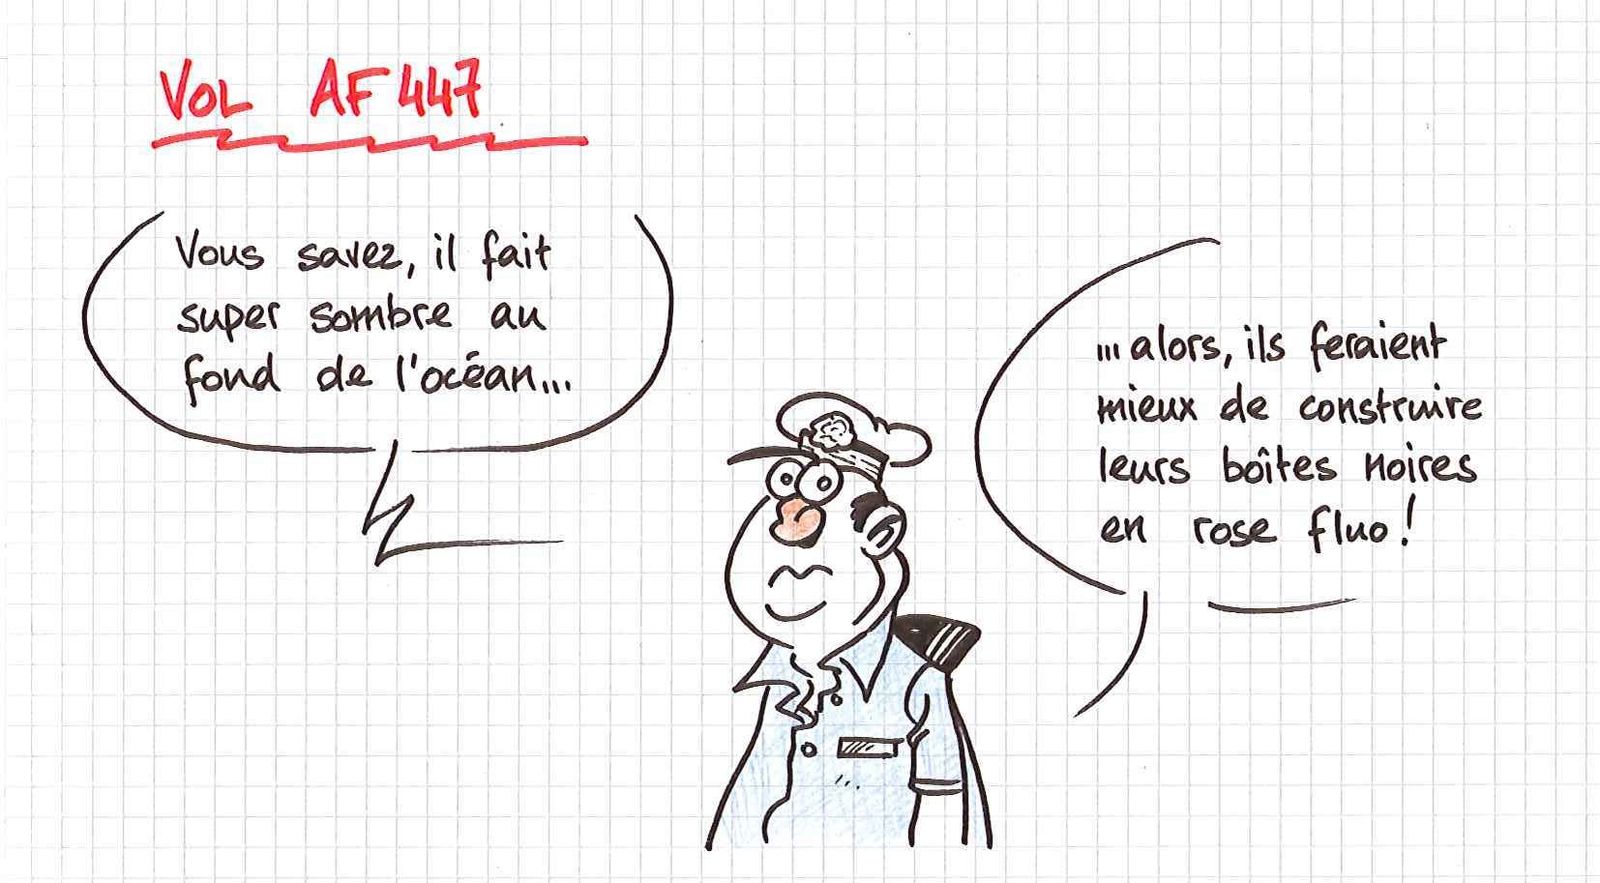 VOL AF 447
Vous savez, il fait
super sombre au
fond de l'océan...
...alors, ils feraient
mieux de construire
leurs boîtes noires
en rose fluo!